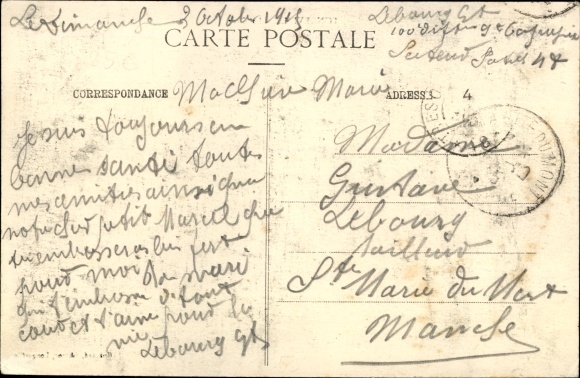 Le Dimanche 3 Octobre 1915
Lebourg Gt
CARTE POSTALE
Secteur Postal 47
CORRESPONDANCE
ADRESSE
4
Ma Chère Marie
je suis toujours en
bonne santé toutes
mes amities ainsi qua
notre cher petit Marcel que
tu embrasseras bien fort
pour moi Ton mari
qui t'embrasse de tout
coeur et t'aime pour la
vie
Lebourg Gt
Madame
Gustave
Lebourg
tailleur
Ste Marie du Mont
Manche